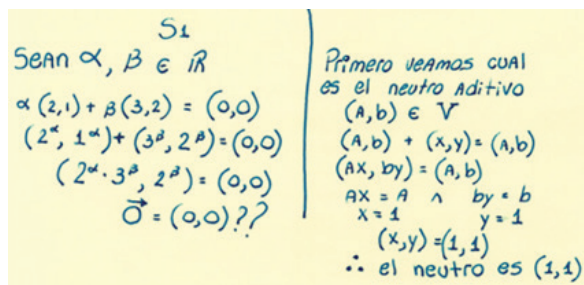 S1
Sean α, β ∈ IR
α(2,1) + β(3,2) = (0,0)
(2^α, 1^α) + (3^β, 2^β) = (0,0)
(2^α · 3^β, 2^β) = (0,0)
0⃗ = (0,0)??
Primero veamos cual
es el neutro aditivo
(A,b) ∈ V
(A,b) + (x,y) = (A,b)
(Ax, by) = (A,b)
Ax = A ∧ by = b
x = 1 y = 1
(x,y) = (1,1)
∴ el neutro es (1,1)